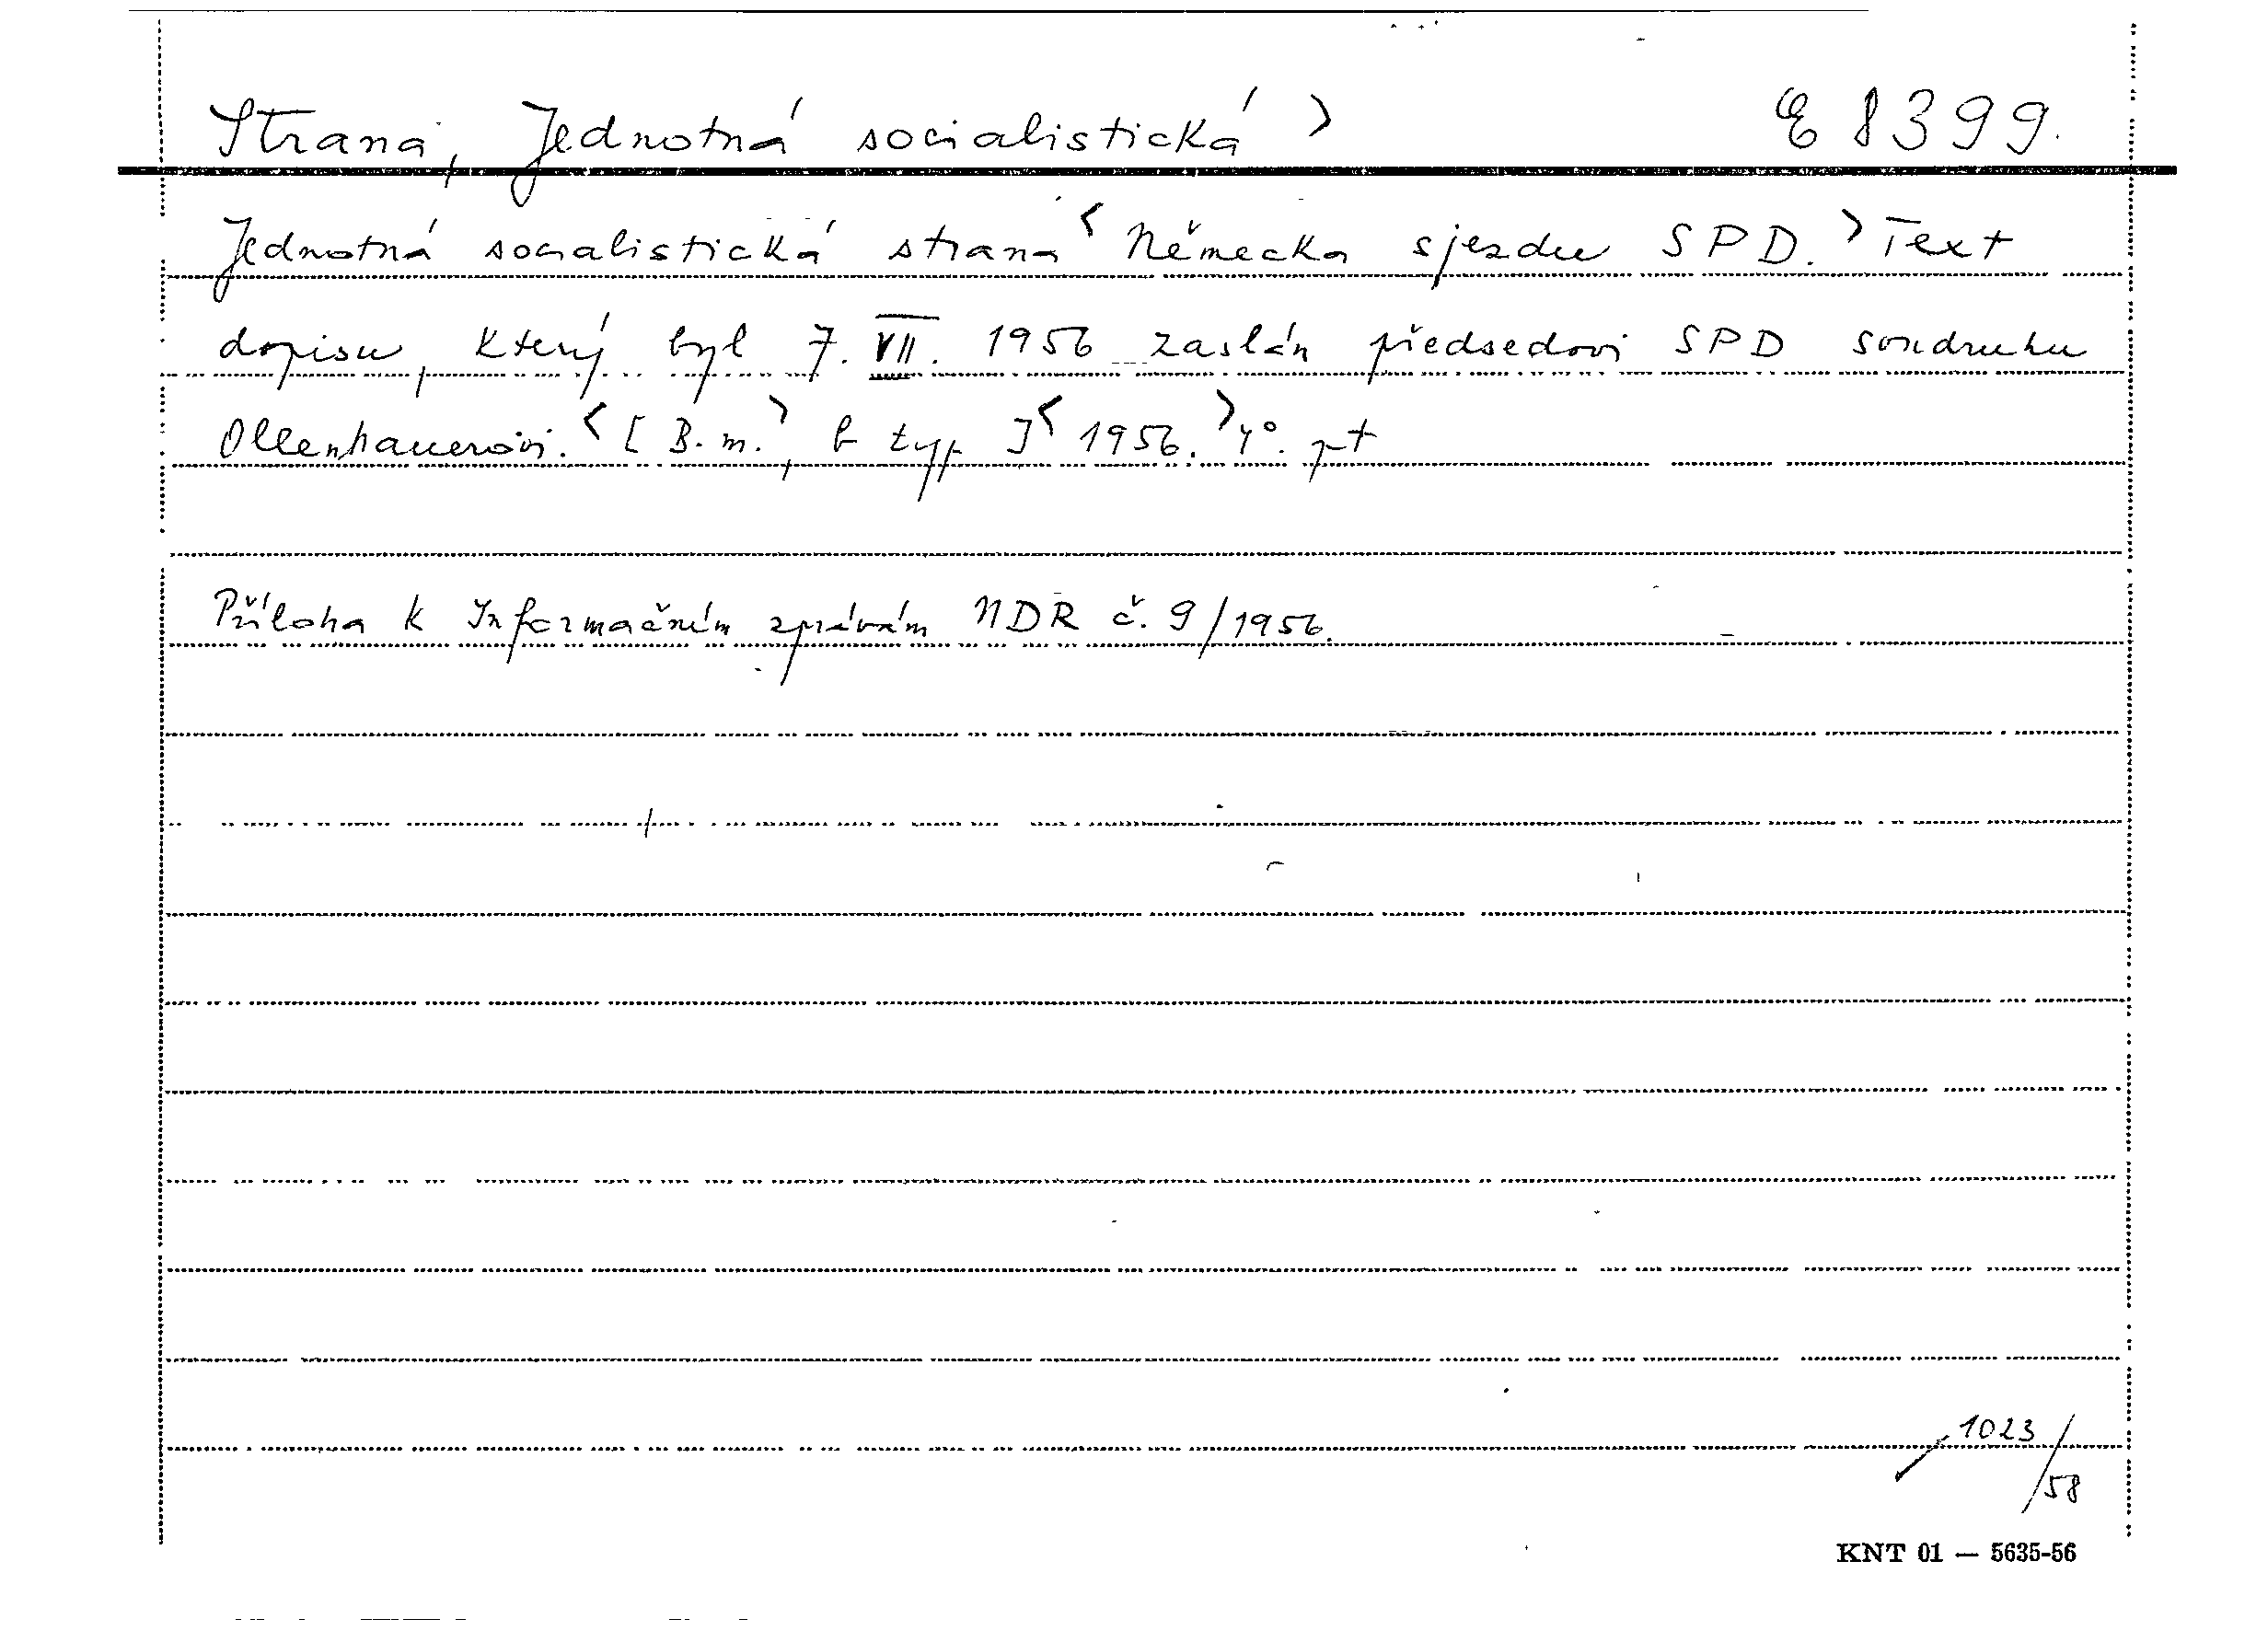 Strana, Jednotná socialistická > E 8399.
Jednotná socialistická strana < Německa sjezdu SPD. > Text
dopisu, který byl 7. VII. 1956 zaslán předsedovi SPD soudruhu
Ollenhauerovi. < [ B. m. >, b typ ] < 1956. > 4°. pt
Příloha k Informačním zprávám NDR č. 9/1956.
1023/58
KNT 01 — 5635-56